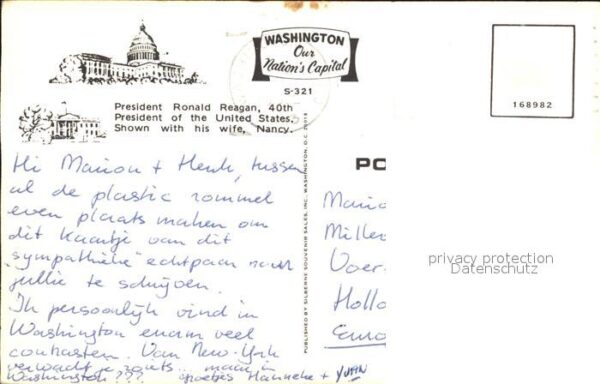 WASHINGTON
Our
Nation's Capital
S-321
168982
President Ronald Reagan, 40th
President of the United States.
Shown with his wife, Nancy.
PUBLISHED BY SILBERNE SOUVENIR SALES, INC. WASHINGTON, D.C. 20018
Hi Marion + Henk, tussen
al de plastic rommel
even plaats maken om
dit kaartje van dit
"sympathieke" echtpaar naar
jullie te schrijven.
Ik persoonlijk vind in
Washington enorm veel
contrasten. Van New-York
verwacht je zoiets maar in
Washington??? groetjes Hanneke +
PO
Mario
Mille
Voer
Hollo
Euro
privacy protection
Datenschutz